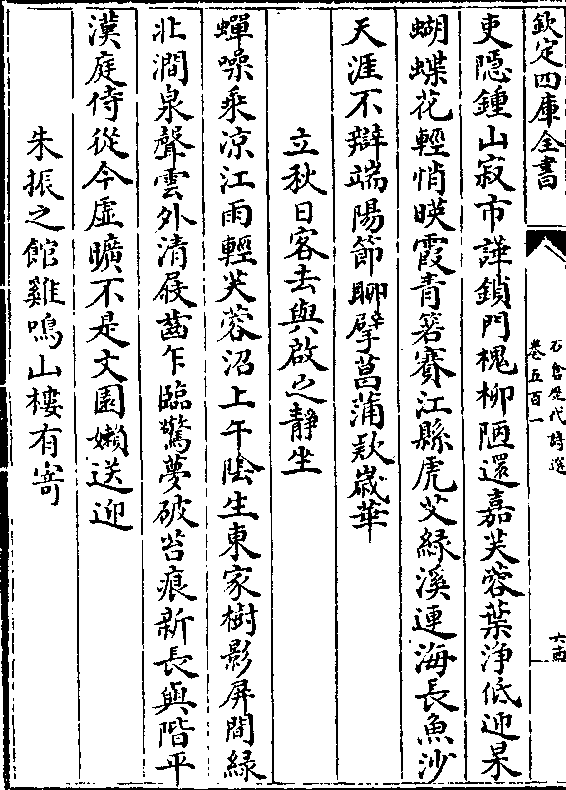 欽定四庫全書
石倉歷代詩選
卷五百一
六
吏隱鍾山寂市諠鎖門槐柳陋還嘉芙蓉葉淨低迎杲
蝴蝶花輕悄映霞青箬賽江縣虎艾緑溪連海長魚沙
天涯不辯端陽節聊擘菖蒲歎歲華
立秋日客去與啟之靜坐
蟬噪乘凉江雨輕芙蓉沼上午陰生東家樹影屏間緑
北澗泉聲雲外清屐齒乍臨驚夢破苔痕新長與階平
漢庭侍從今虛曠不是文園嬾送迎
朱振之館雞鳴山樓有寄